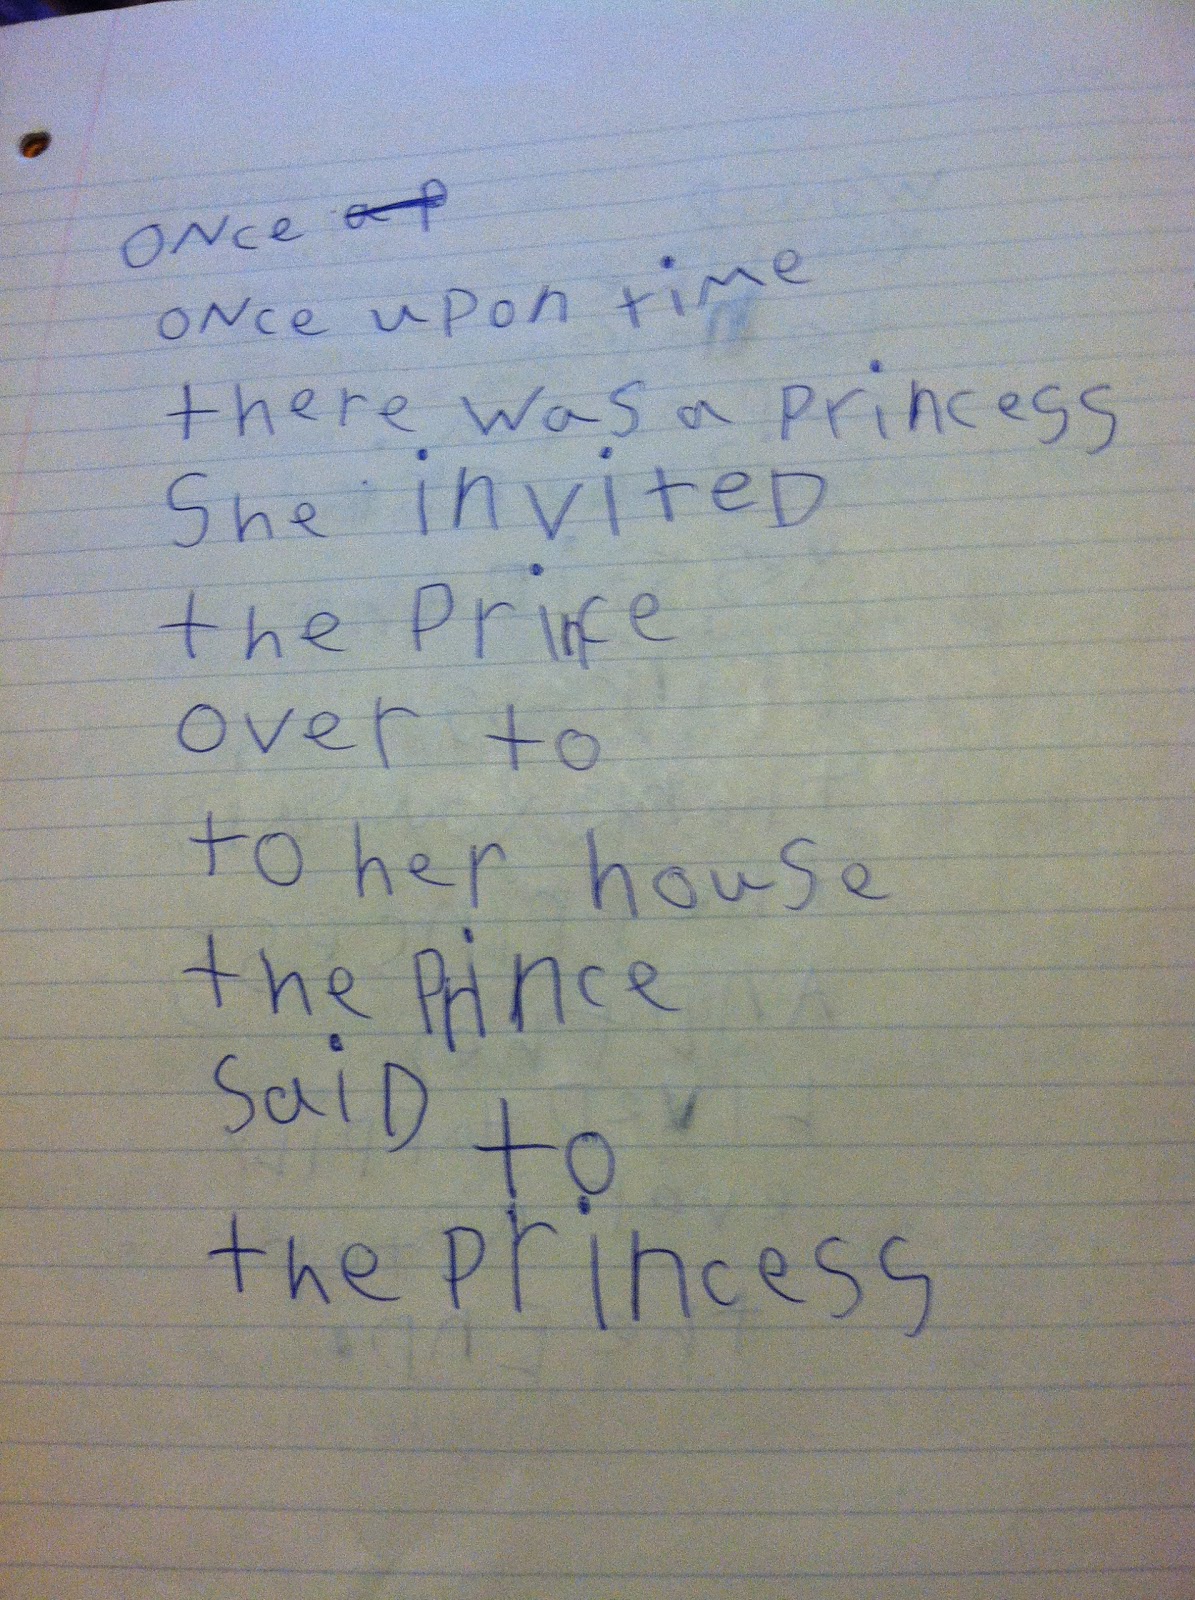 ONce ap
ONce upon time
there was a princess
She inviteD
the Prince
over to
to her house
the Prince
SaiD to
the princess